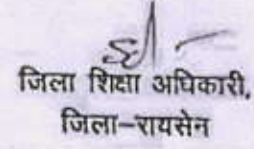 जिला शिक्षा अधिकारी,
जिला-रायसेन